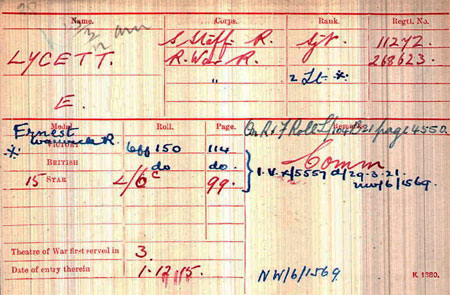 Name. Corps. Rank. Regtl. No.
LYCETT. S. Staff. R. Sjt 11272.
R. War. R. 268623.
E. " 2 Lt *
Medal. Roll. Page. Remarks.
On R & F Roll page 4550.
Ernest
* Warwick R.
VICTORY Off 150 114
BRITISH do do.
15 STAR L/6c 99.
Comm
I.V. x/5557 d/29.3.21.
NW/6/1569.
Theatre of War first served in 3.
Date of entry therein 1.12.15.
NW/6/1569
K. 1380.